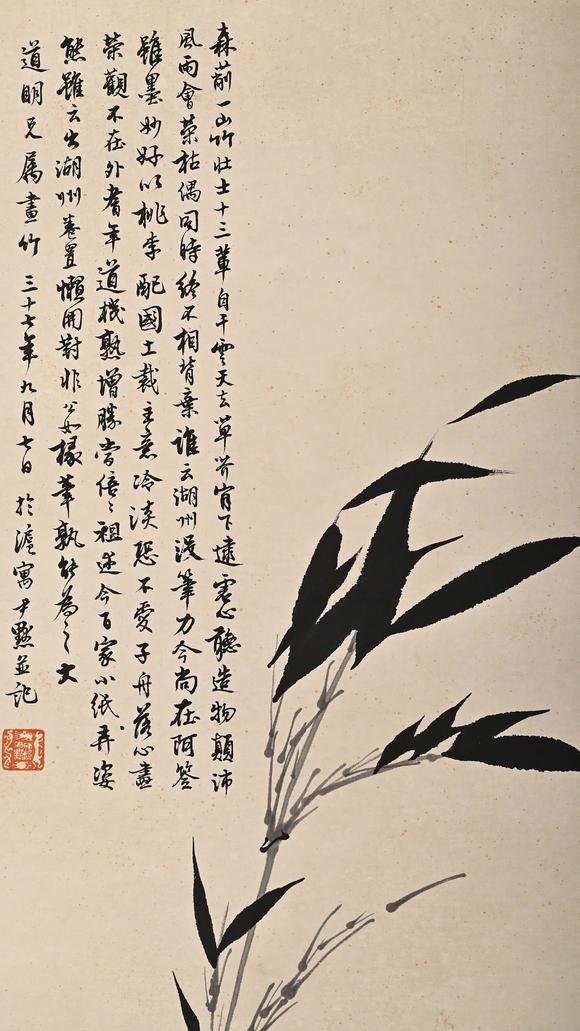 森削一山竹壯士十三輩自干雲天去草芥肎下逮虛心聽造物顛沛
風雨會榮枯偶同時終不相背棄誰云湖州沒筆力今尚在阿筌
雖墨妙好以桃李配國工裁主意冷淡恐不愛子舟落心畫
榮觀不在外耆年道機熟增勝當倍〻祖述今百家小紙弄姿
態雖云出湖州卷置懶開對非公如椽筆孰能為之大
道明兄屬畫竹 三十七年九月七日 於滬寓 尹默並記